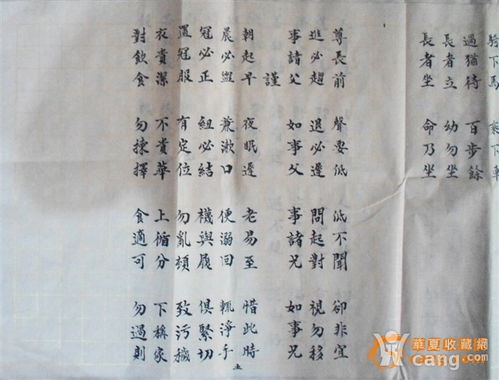 騎下馬 乘下車
過猶待 百步餘
長者立 幼勿坐
長者坐 命乃坐
尊長前 聲要低 低不聞 卻非宜
進必趨 退必遲 問起對 視勿移
事諸父 如事父 事諸兄 如事兄
謹
朝起早 夜眠遲 老易至 惜此時
晨必盥 兼漱口 便溺回 輒淨手
冠必正 紐必結 襪與履 俱緊切
置冠服 有定位 勿亂頓 致污穢
衣貴潔 不貴華 上循分 下稱家
對飲食 勿揀擇 食適可 勿過則
華夏收藏網
cang.com